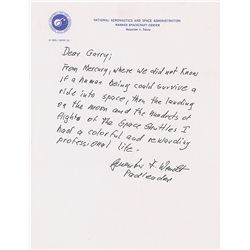 NATIONAL AERONAUTICS AND SPACE ADMINISTRATION
MANNED SPACECRAFT CENTER
HOUSTON 1, TEXAS
IN REPLY REFER TO:
Dear Garry:
From Mercury, where we did not know
if a human being could survive a
ride into space, then the landing
on the moon and the hundreds of
flights of the Space Shuttles I
had a colorful and rewarding
professional life.
Guenter F. Wendt
Padleader